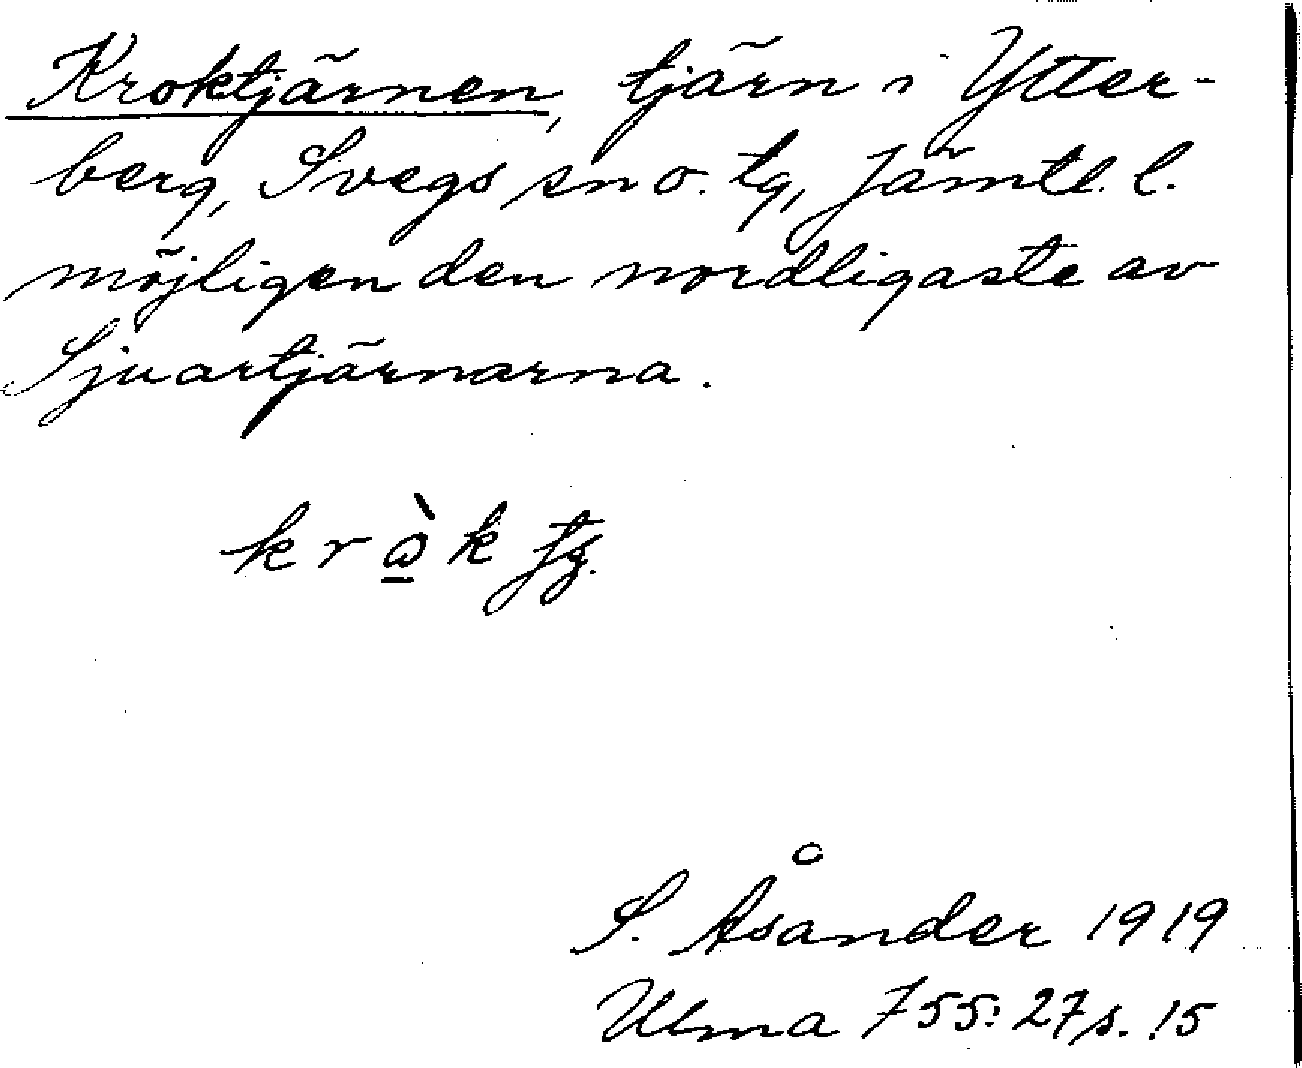 Kroktjärnen, tjärn i Ytter-
berg, Svegs sn o. tg, Jämtl. l.
möjligen den nordligaste av
Sjuartjärnarna.
k r
S. Åsander 1919
Ulma 755:27 s. 15